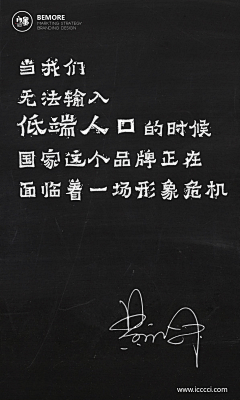 BEMORE
MARKTING STRATEGY
BRANDING DESIGN
当我们
无法输入
低端人口的时候
国家这个品牌正在
面临着一场形象危机
www.iccci.com